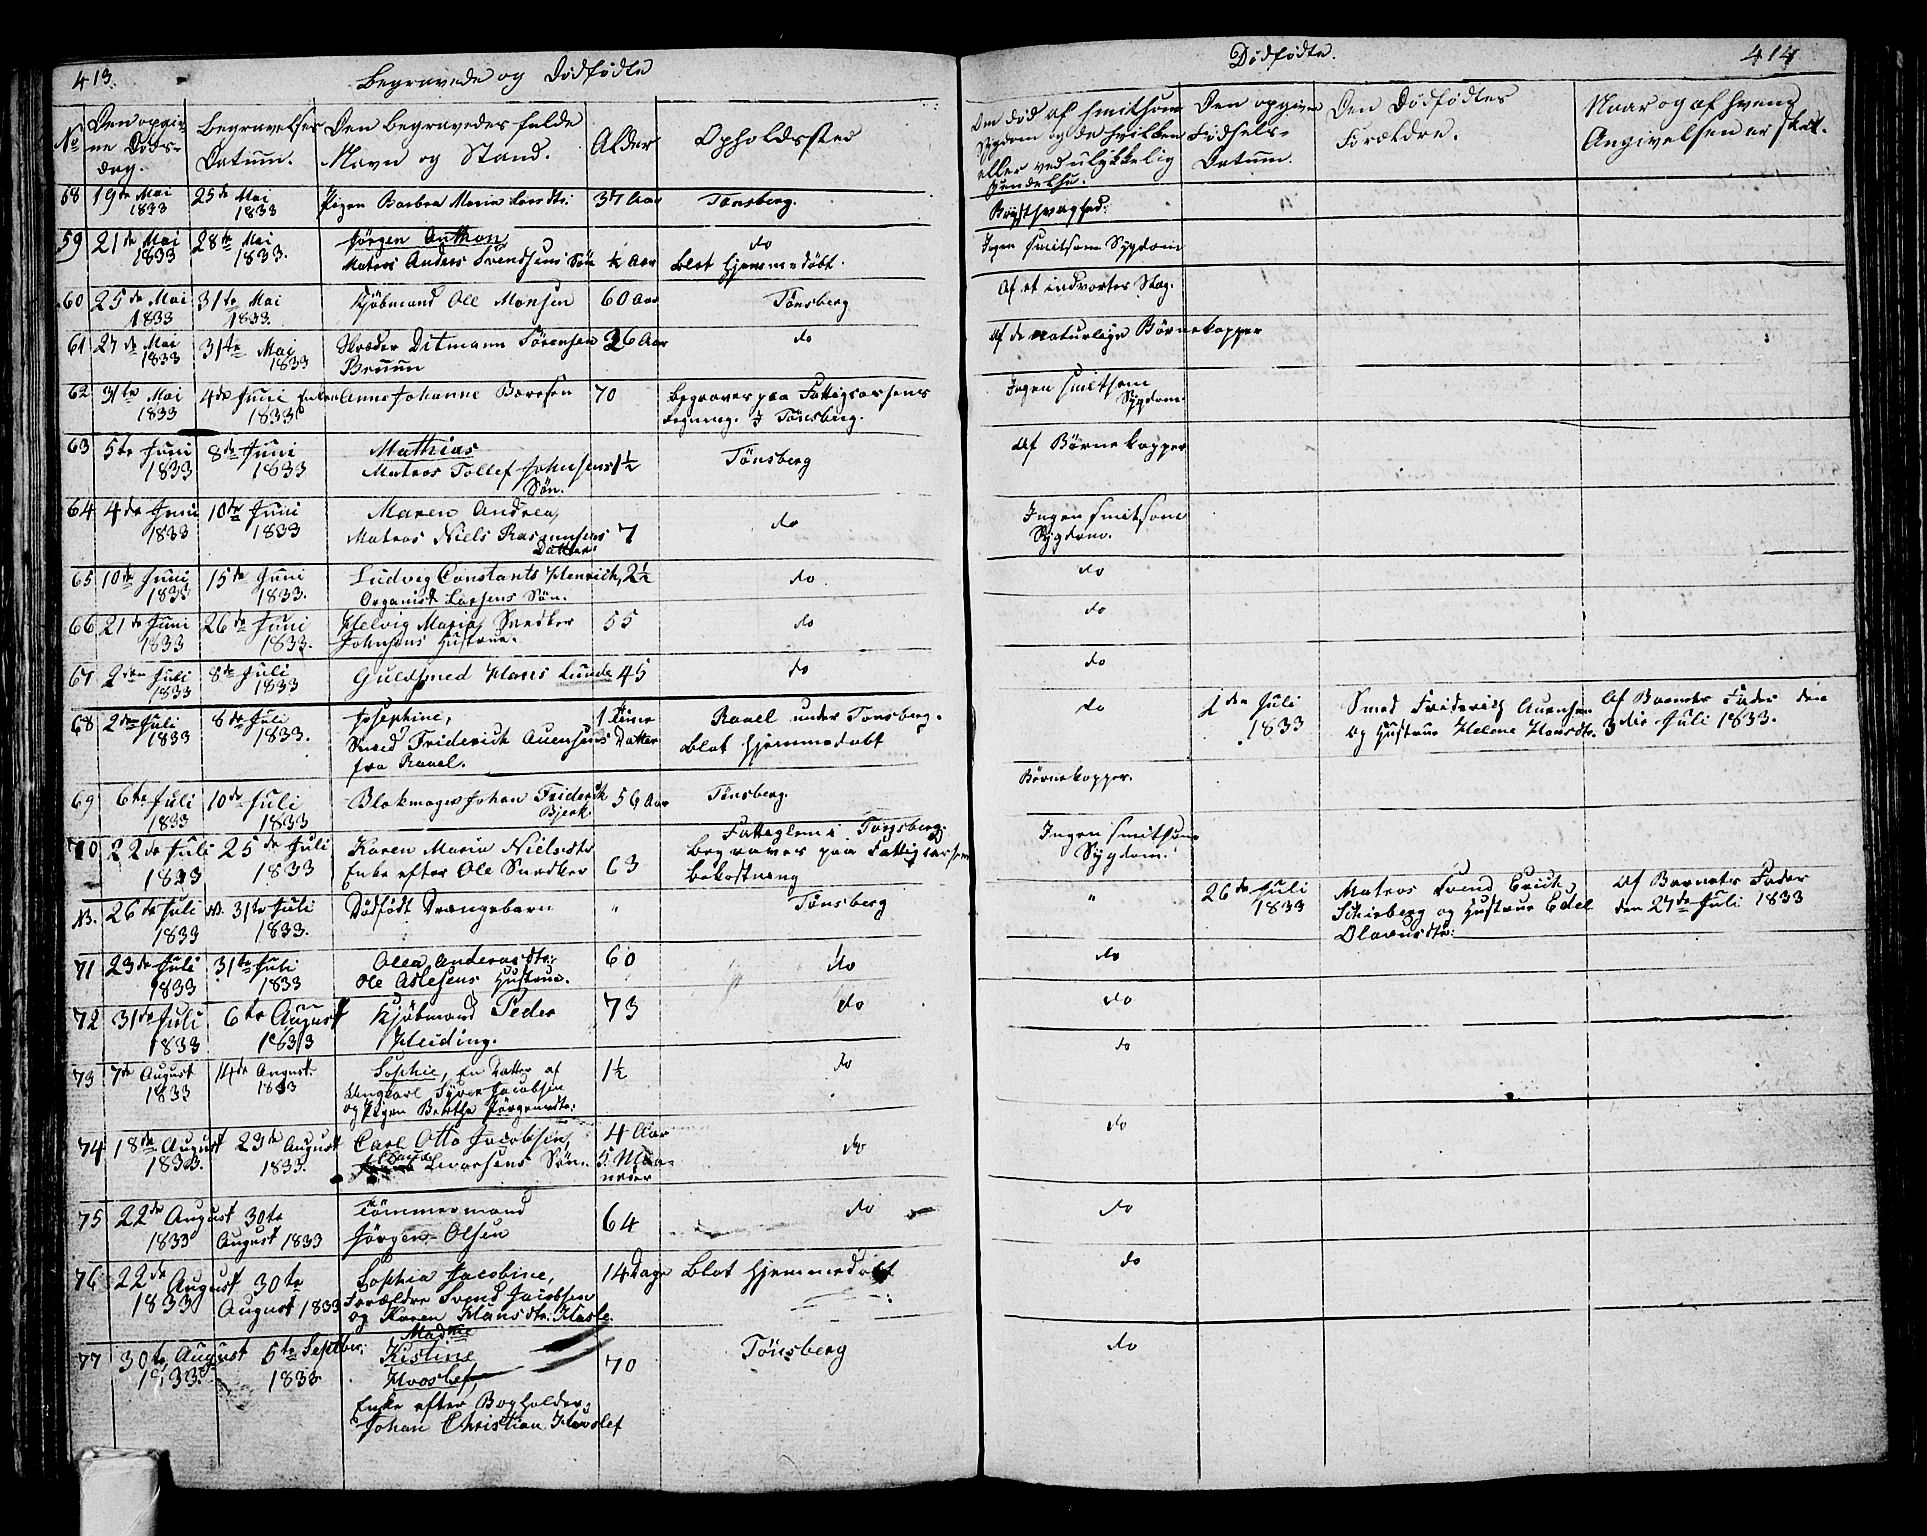 413.
Begravede og Dødfødte
No
Den opgiv-
ne Døds-
dag.
Begravelses
Datum.
Den begravedes fulde
Navn og Stand.
Alder
Opholdssted
58 19de Mai 1833 25de Mai 1833 Pigen Barbra Maria Larsdtr: 37 Aar Tønsberg.
59 21de Mai 1833 28de Mai 1833. Jørgen Anthon,
Matros Anders Svendsens Søn ½ Aar do
blot hjemmedøbt.
60 25de Mai 1833 31te Mai 1833. Kjøbmand Ole Monsen 60 Aar Tønsberg
61 27de Mai 1833 31te Mai 1833 Skræder Ditmann Sørensen 26 Aar do
Bruun
62 31te Mai 1833 4de Juni 1833 Enken Anne Johanne Baresen 70 Begraves paa Fattigcassens
Regning. i Tønsberg.
63 5te Juni 1833 8de Juni 1833 Mathias
Matros Tollef Johnsens 1½ Tønsberg
Søn.
64 4de Juni 1833 10de Juni 1833 Maren Andrea,
Matros Niels Rasmussens 7 do
Datter.
65 10de Juni 1833 15de Juni 1833. Ludvig Constants Henrich, 2½ do.
Organist Larsens Søn.
66 21de Juni 1833 26de Juni 1833. Helvig Maria, Snedker 55 do
Johnsens Hustrue.
67 2den Juli 1833 8de Juli 1833 Guldsmed Hans Lunde 45 do
68 2den Juli 1833 8de Juli 1833. Josephine, 1 Time Ravel under Tønsberg.
Smed Friderich Auensens Datter blot hjemmedøbt
fra Ravel.
69 6te Juli 1833 10de Juli 1833 Blokmager Johan Friderik 56 Aar Tønsberg.
Bjerk.
70 22de Juli 1833 25de Juli 1833 Karen Maria Nielsdtr 63 Fatteglem i Tønsberg.
Enke efter Ole Snedker begraves paa Fattigcassens
bekostning
NB. 26de Juli 1833 NB. 31te Juli 1833. Dødfødt Drængebarn " Tønsberg
71 23de Juli 1833 31te Juli 1833 Olea Andersdtr: 60 do
Ole Aslesens Hustrue.
72 31te Juli 1833 6te August 1833 Kjøbmand Peder 73 do
Heiding.
73 7de August 1833 14de August 1833 Sophie, en Datter af 1½ do
Ungkarl Syver Jacobsen
og Pigen Berthe Jørgensdtr:
74 18de August 1833. 23de August 1833. Carl Otto Jacobsen, 4 Aar do
Levorsens Søn. 5. Maa-
neder
75 22de August 1833 30te August 1833 Tømmermand 64 do
Jørgen Olsen
76 22de August 1833 30te August 1833 Sophia Jacobine, 14 Dage blot hjemmedøbt
Forældre Svend Jacobsen
og Karen Hansdtr: Hasle.
77 30te August 1833. 5te Septbr: 1833 Madme
Kistine 70 Tønsberg
Hvoslef,
Enke efter Bogholder
Johan Christian Hvoslef
Dødfødte.
414
Om død af smitsom
Sygdom og da hvilken
eller ved ulykkelig
Hændelse.
Den opgivne
Fødsels-
Datum.
Den Dødfødtes
Forældre.
Naar og af hvem
Angivelsen er skeet.
Brystsvaghed.
Ingen smitsom Sygdom
Af et indvortes Slag.
Af de naturlige Børnekopper
Ingen smitsom
Sygdom.
Af Børnekopper
Ingen smitsom
Sygdom.
do
do
do
do 2den Juli 1833 Smed Friderich Auensen Af Barnets Fader den
og Hustrue Helene Hansdtr. 3die Juli 1833.
Børnekopper.
Ingen smitsom
Sygdom.
" 26de Juli 1833 Matros Svend Erich Af Barnets Fader
Schieberg og Hustrue Edel den 27de Juli 1833
Olavusdtr:
do
do
do
do
do
do
do